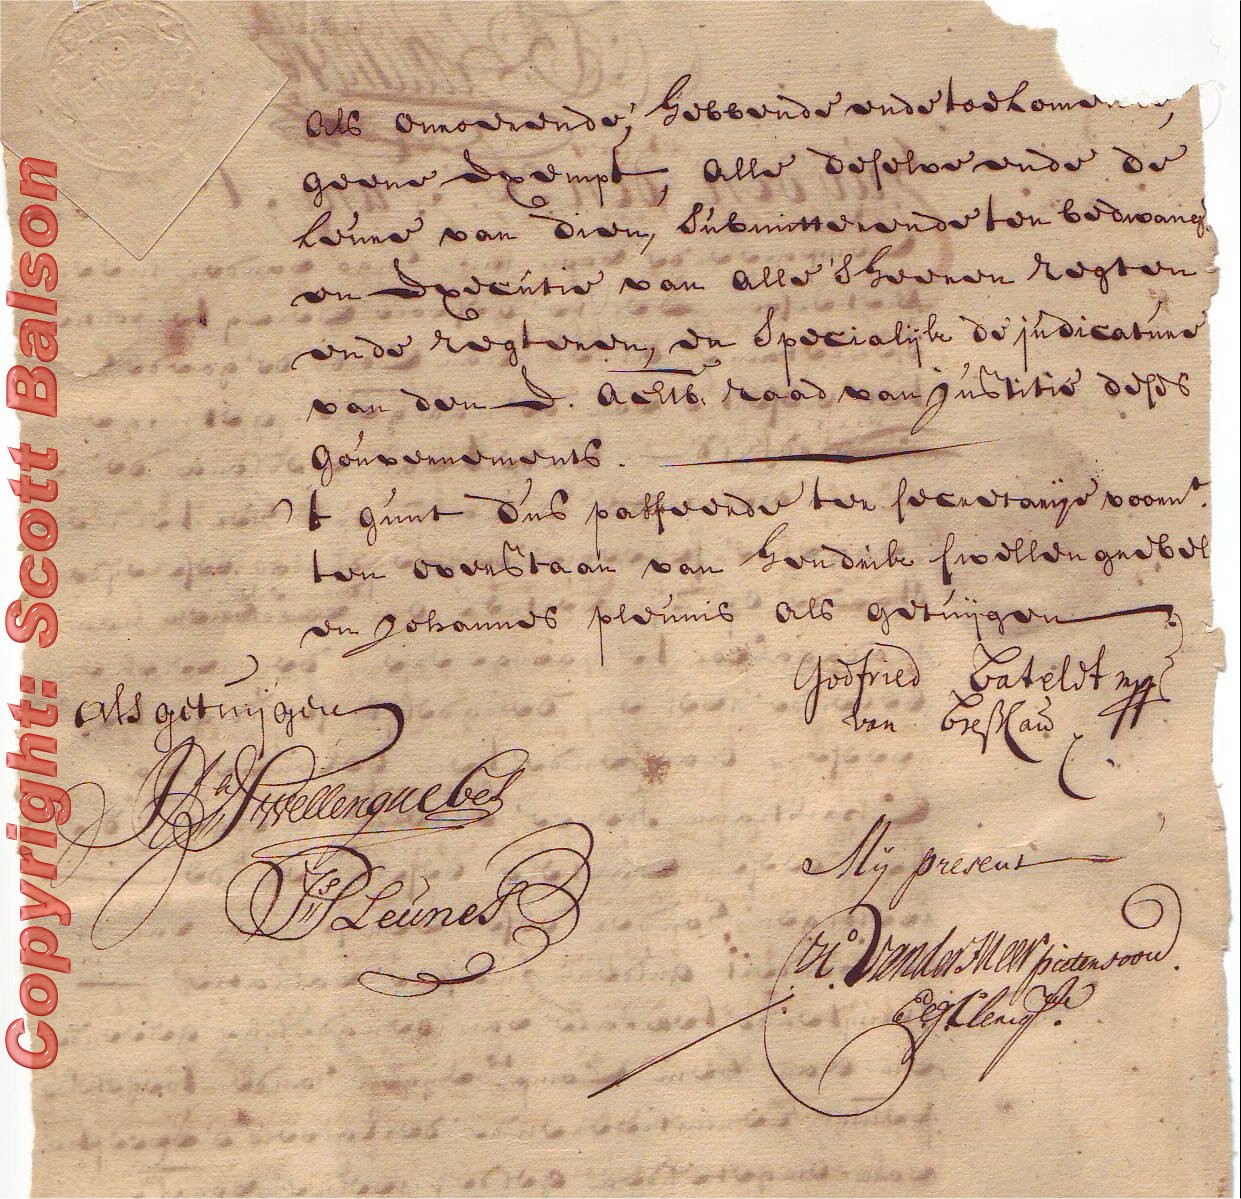 als onroerende, hebbende ende toekomende,
geene Exempt, alle deselve ende de
keure van dien, submitterende ten bedwang
en Executie van alle 's Heeren Regten
ende Regteren, en specialijk de judicature
van den E. Achtb. raad van justitie deses
gouvernements.
't gunt dus passeerde ter secretarije voornt.
ten overstaan van Hendrik swellengrebel
en Johannes pleunis als getuijgen
Godfried Bateldt mpp
van Breslau
als getuijgen
Hk Swellengrebel
Js Pleunes
Mij present
Ro. VanderMeer pietersoon
E. g. Clercq
Copyright: Scott Balson